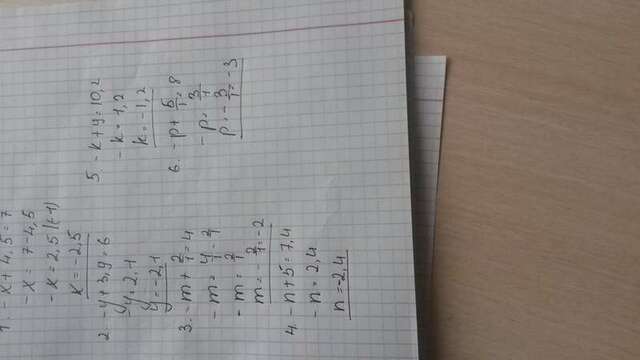 1. -x + 4,5 = 7
-x = 7 - 4,5
-x = 2,5 |(-1)
x = -2,5
2. -y + 3,9 = 6
-y = 2,1
y = -2,1
3. -m + 2/1 = 4
-m = 4/1 - 2/1
-m = 2/1
m = - 2/1 = -2
4. -n + 5 = 7,4
-n = 2,4
n = -2,4
5. -k + 9 = 10,2
-k = 1,2
k = -1,2
6. -p + 5/1 = 8
-p = 3/1
p = - 3/1 = -3